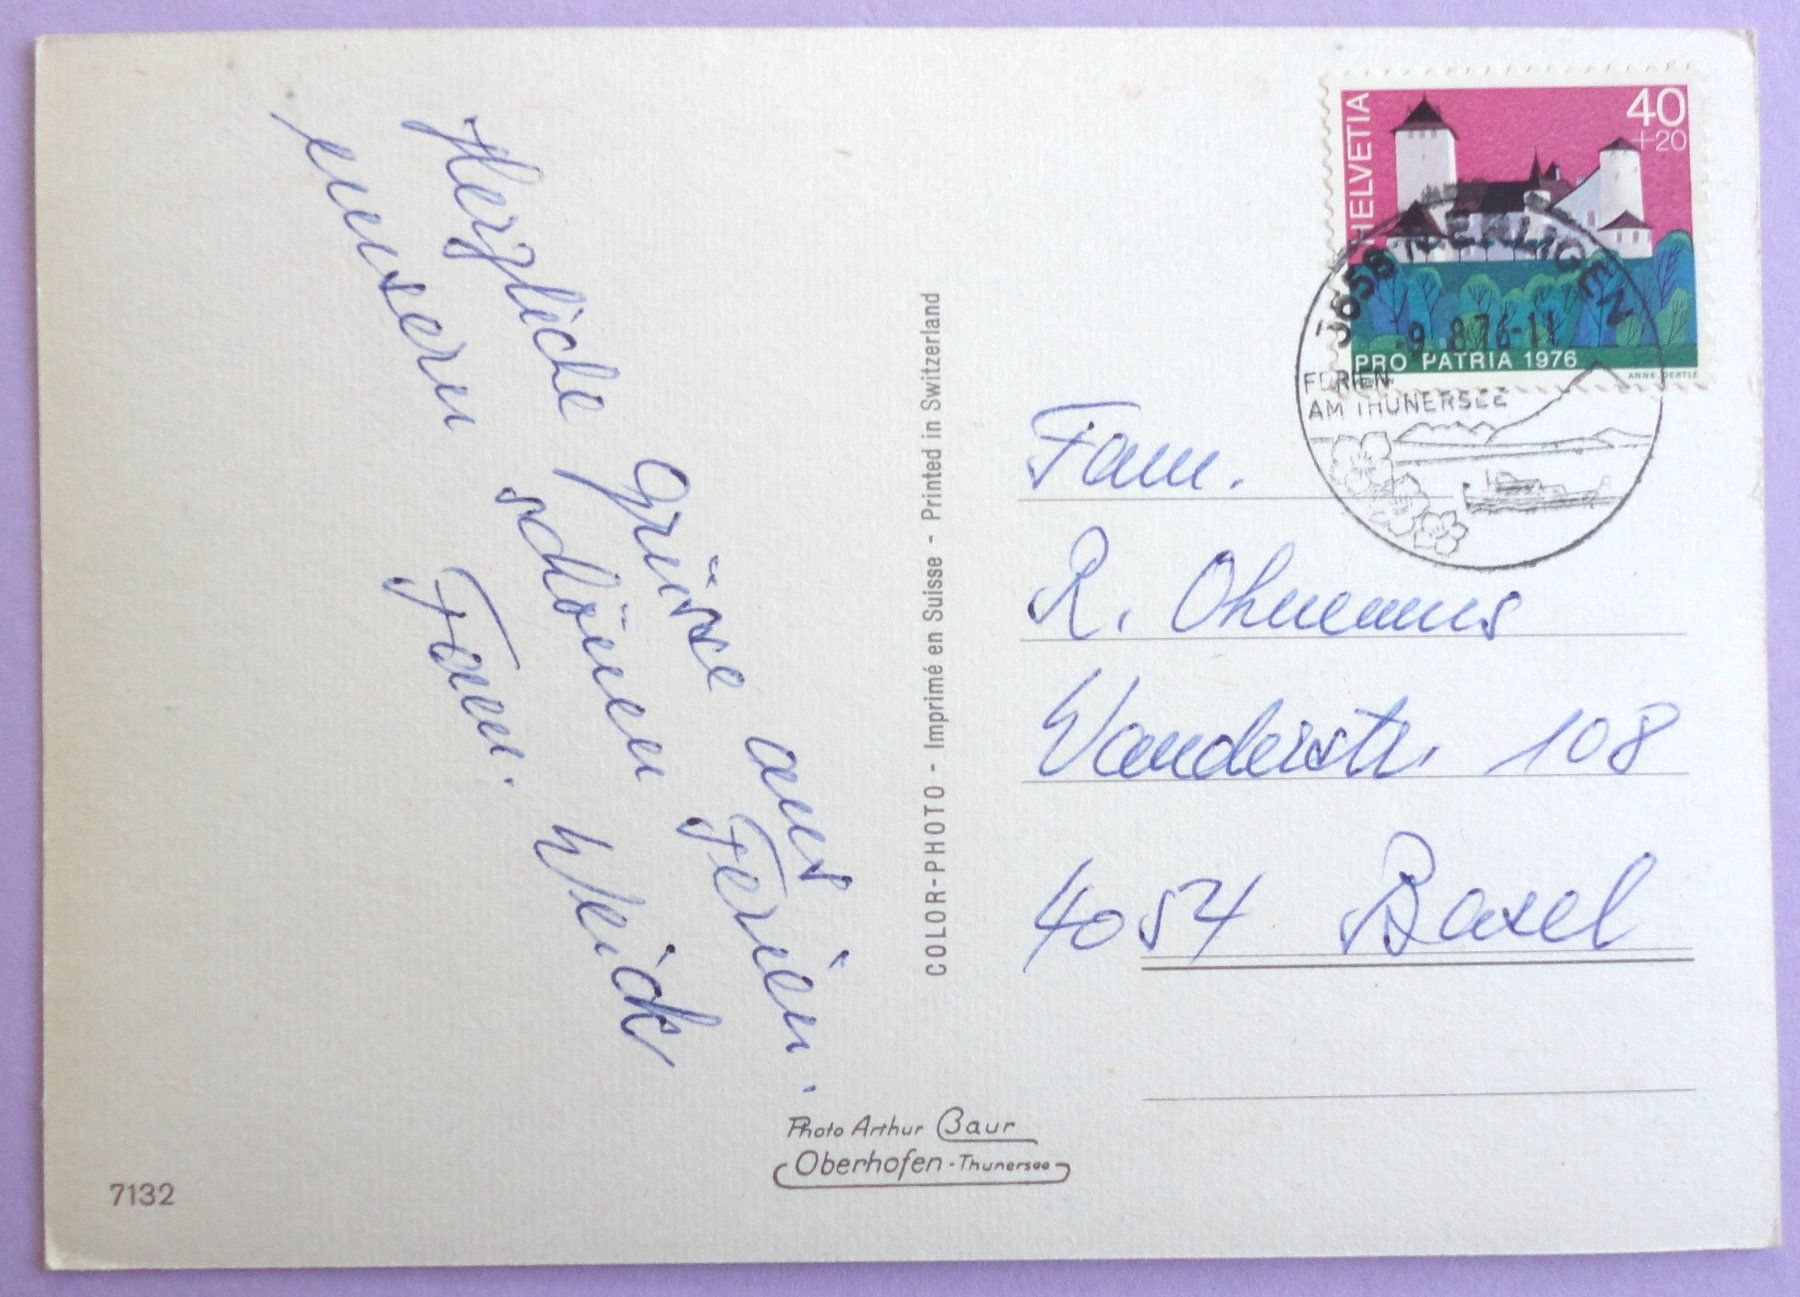 Herzliche Grüsse aus
unsern schönen Ferien.
Fam. Weick
COLOR-PHOTO - Imprimé en Suisse - Printed in Switzerland
HELVETIA
40
+20
PRO PATRIA 1976
ANNE OERTLE
3658 MERLIGEN
-9.8.76-11
FERIEN
AM THUNERSEE
Fam.
R. Ohnemus
Wanderstr. 108
4054 Basel
Photo Arthur Baur
Oberhofen - Thunersee
7132